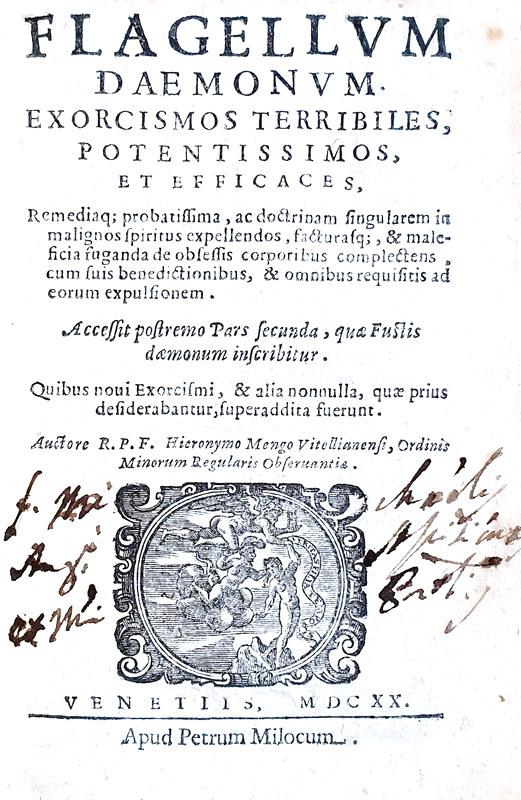 FLAGELLVM
DAEMONVM.
EXORCISMOS TERRIBILES,
POTENTISSIMOS,
ET EFFICACES,
Remediaq; probatiſſima, ac doctrinam ſingularem in
malignos ſpiritus expellendos, facturaſq;, & male-
ficia fuganda de obſeſſis corporibus complectens,
cum ſuis benedictionibus, & omnibus requiſitis ad
eorum expulſionem.
Acceſſit poſtremo Pars ſecunda, quæ Fuſtis
dæmonum inſcribitur.
Quibus noui Exorciſmi, & alia nonnulla, quæ prius
deſiderabantur, ſuperaddita fuerunt.
Auctore R. P. F. Hieronymo Mengo Vitellianenſi, Ordinis
Minorum Regularis Obſeruantiæ.
VENETIIS, MDCXX.
Apud Petrum Milocum.